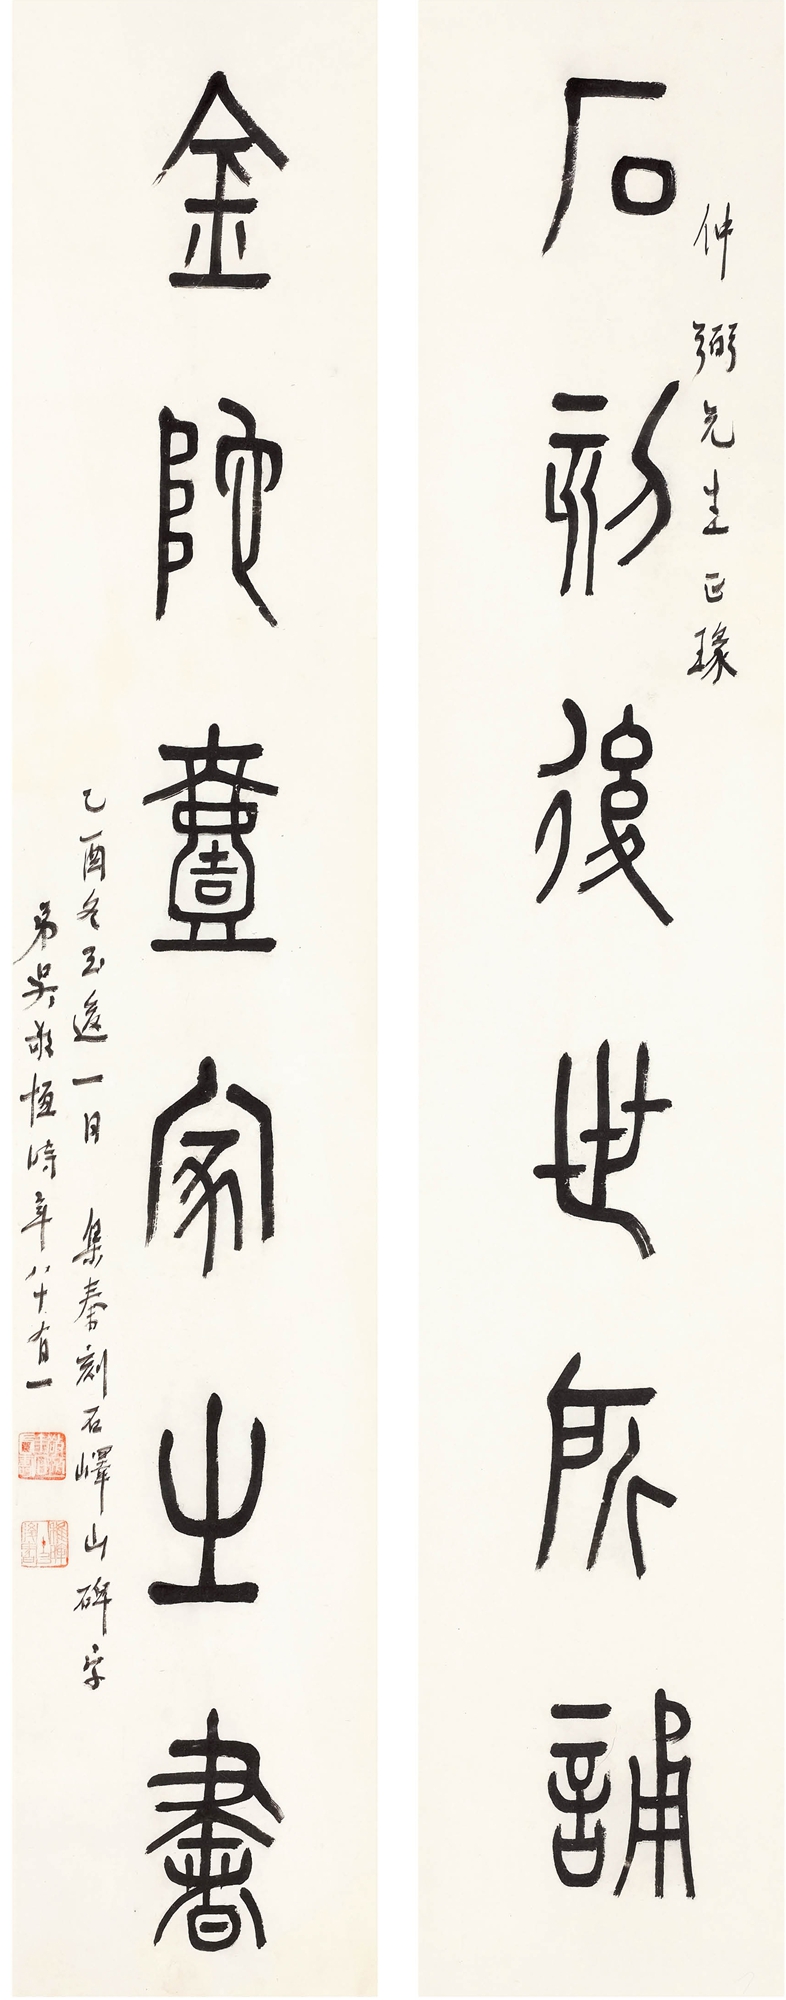 仲弼先生正瑑
石刻後世所誦
金陀壹家之書
乙酉冬至後一日 集秦刻石嶧山碑字
弟吳敬恆時年八十有一